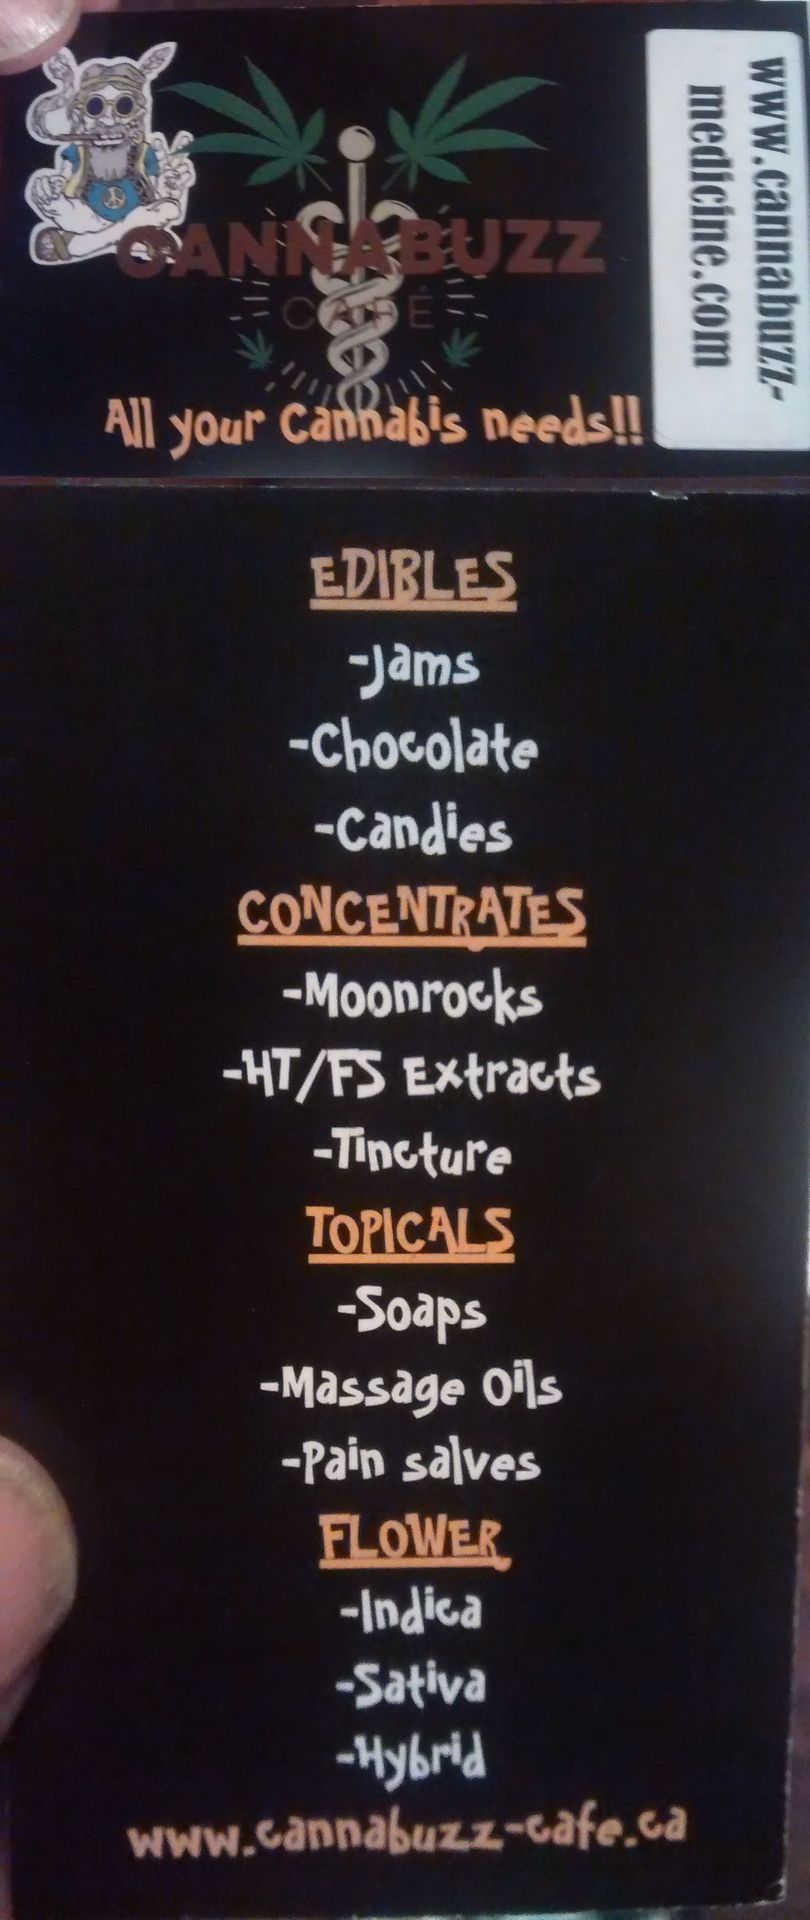 CANNABUZZ
CAFÉ
All your Cannabis needs!!
www.cannabuzz-
medicine.com
EDIBLES
-Jams
-Chocolate
-Candies
CONCENTRATES
-Moonrocks
-HT/FS Extracts
-Tincture
TOPICALS
-Soaps
-Massage Oils
-Pain salves
FLOWER
-Indica
-Sativa
-Hybrid
www.cannabuzz-cafe.ca